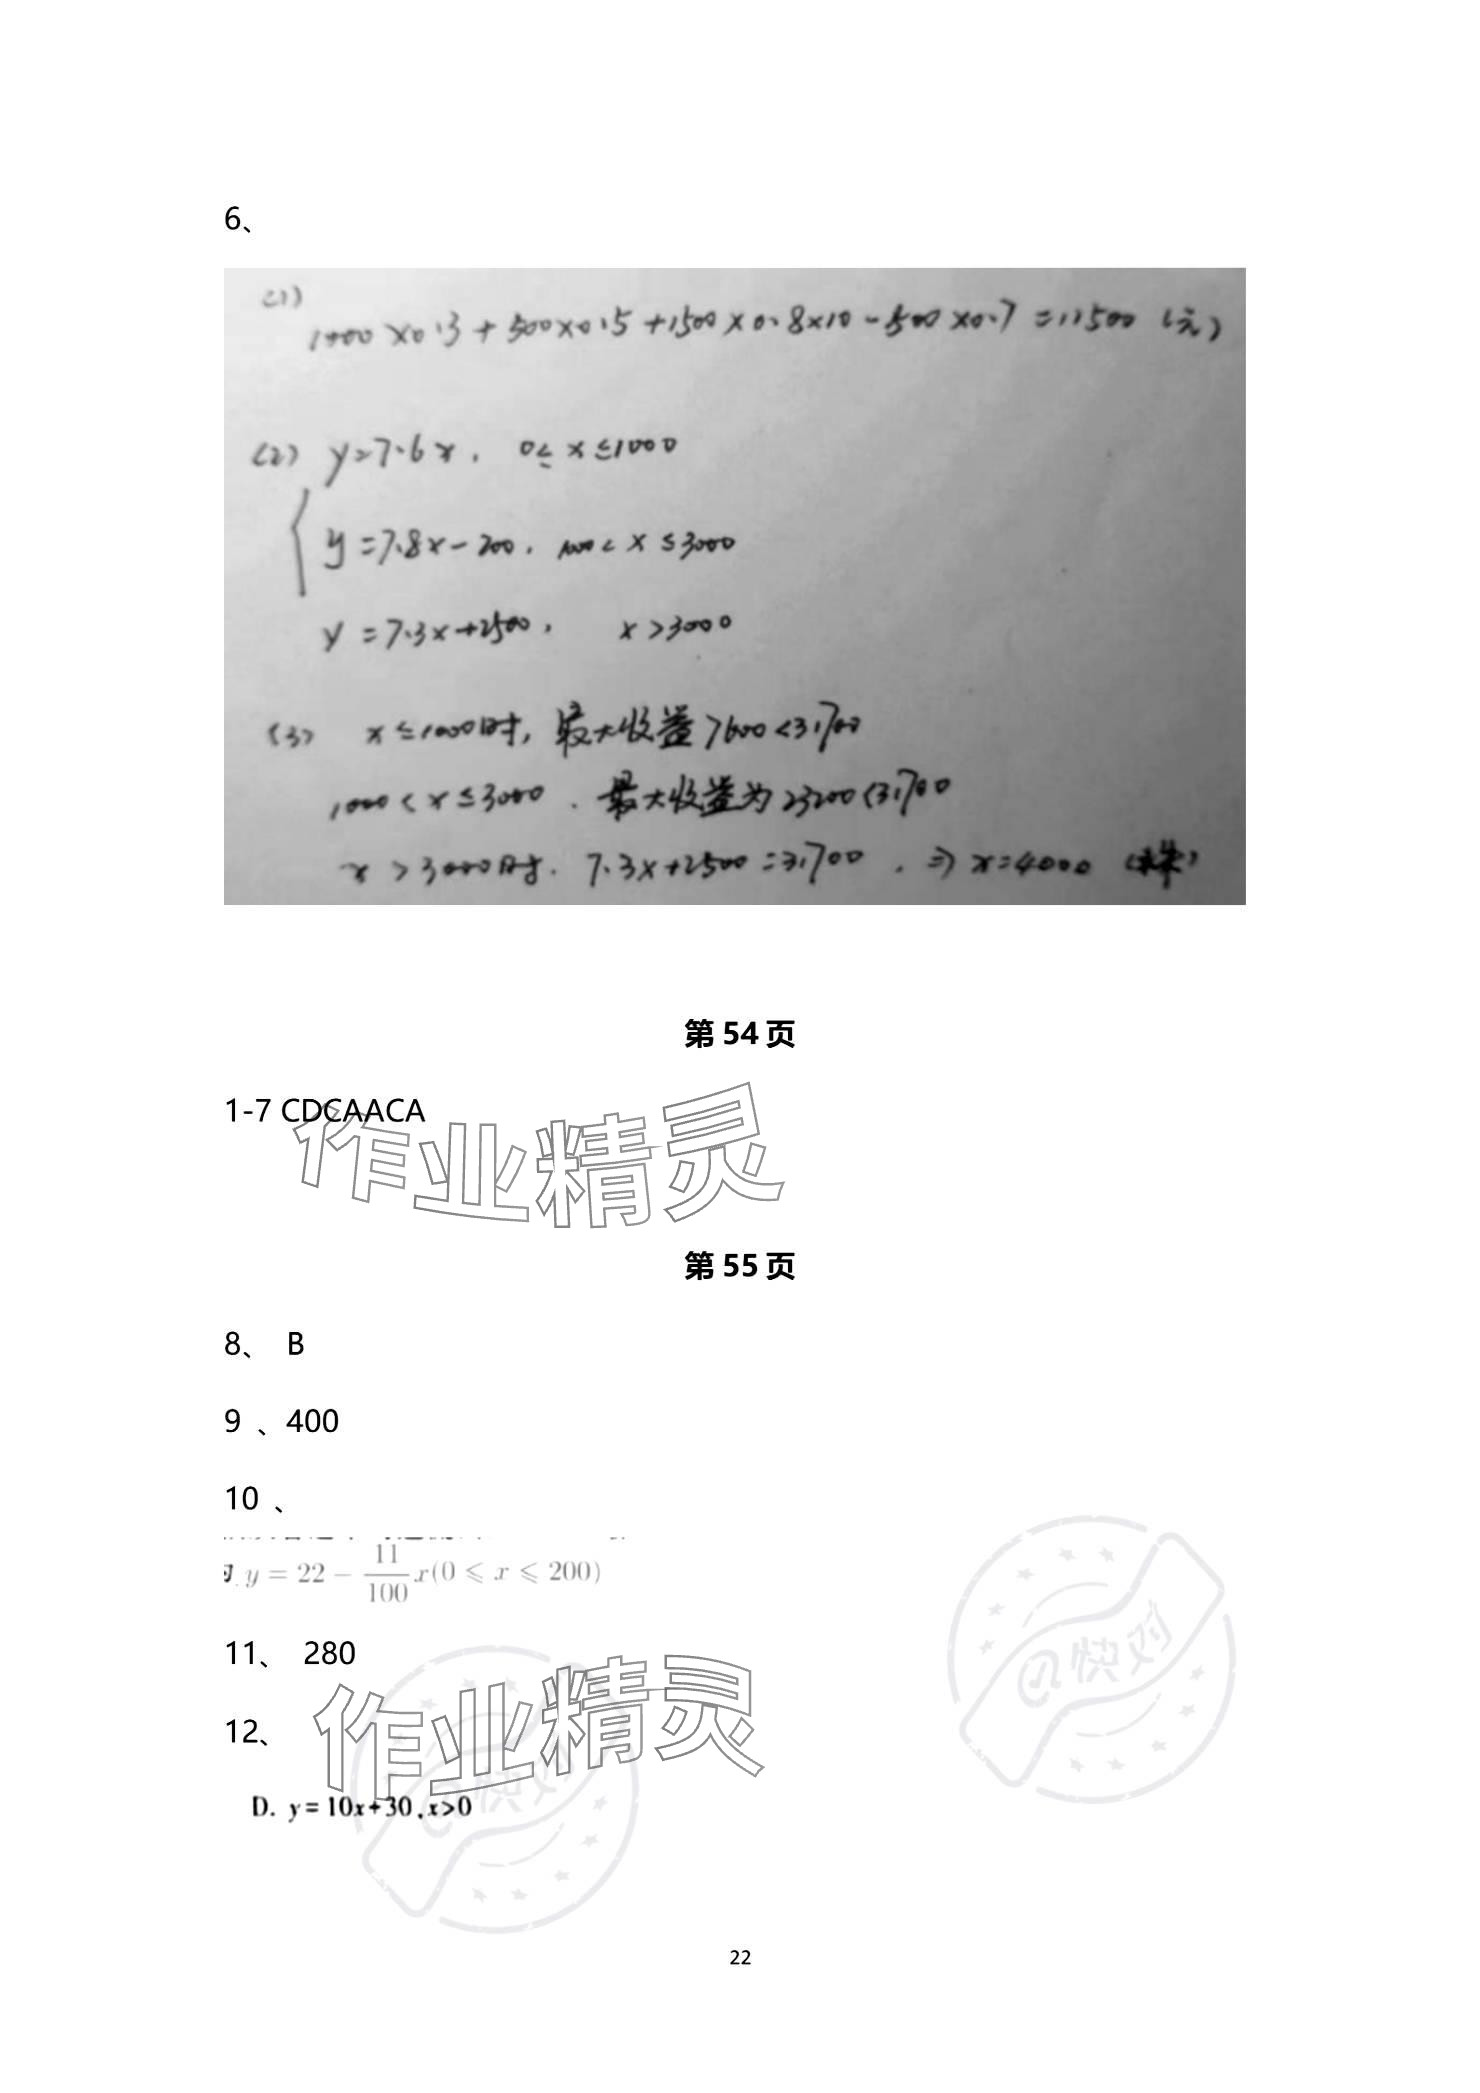 6、
(1)
1000×0.3+500×0.5+1500×0.8×10-500×0.7=11500（元）
(2) y=7.6x, 0≤x≤1000
y=7.8x-200, 1000<x≤3000
y=7.3x+2500, x>3000
(3) x≤1000时, 最大收益7600<31700
1000<x≤3000. 最大收益为23200<31700
x>3000时. 7.3x+2500=31700. ⇒x=4000
第 54 页
1-7 CDCAACA
作业精灵
第 55 页
8、 B
9 、400
10 、
y = 22 - 11/100 x(0 ⩽ x ⩽ 200)
11、 280
12、
作业精灵
@快对
@快对
D. y=10x+30,x>0
22